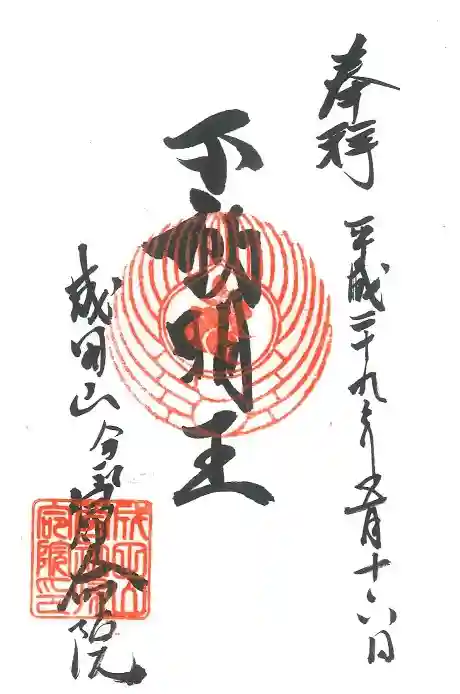 奉拝
平成二十九年五月十六日
不動明王
成田山
院